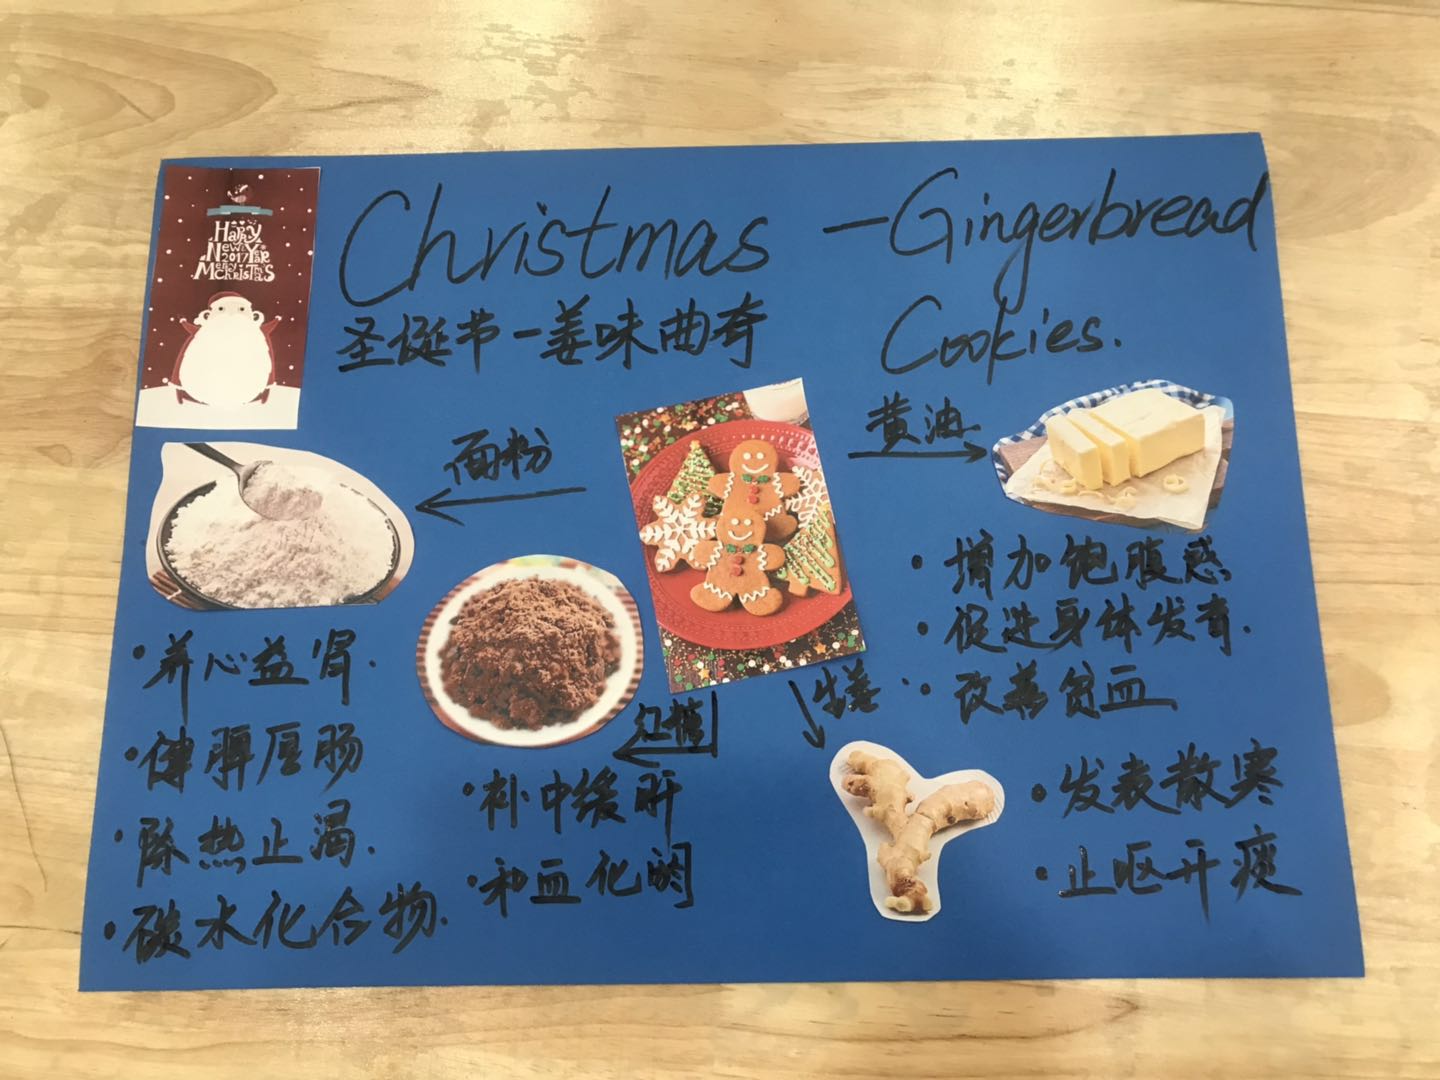 Happy
New Year
2017
Merry Christmas
Christmas - Gingerbread
Cookies.
圣诞节-姜味曲奇
面粉
黄油
·养心益肾.
·健脾厚肠
·除热止渴.
·碳水化合物.
红糖
·补中缓肝
·和血化瘀
生姜
·增加饱腹感
·促进身体发育.
·改善贫血
·发表散寒
·止呕开痰